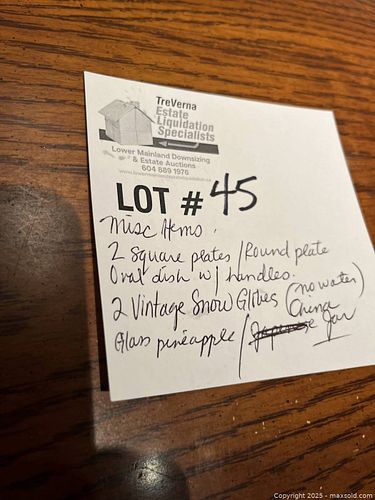 TreVerna
Estate
Liquidation
Specialists
Lower Mainland Downsizing
& Estate Auctions
604 889 1976
LOT # 45
Misc Items.
2 square plates / Round plate
Oval dish w/ handles.
2 Vintage Snow Globes (no water)
Glass pineapple / Japanese China Jar
Copyright © 2025 - maxsold.com